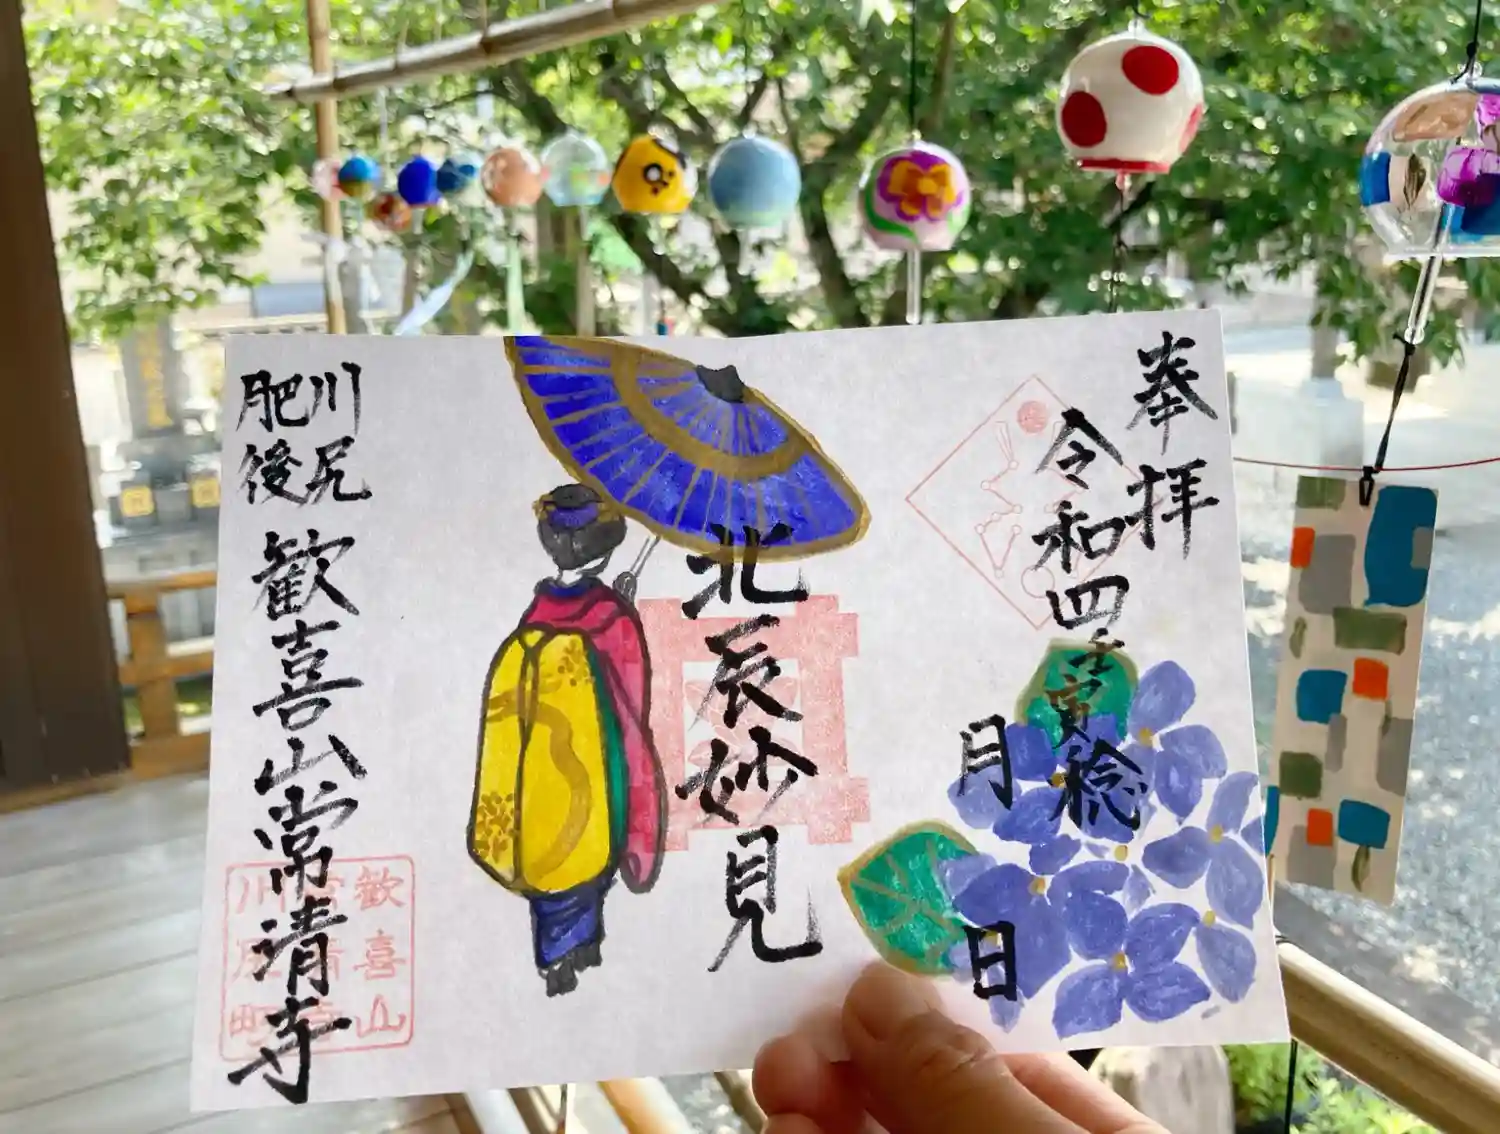 奉拝
令和四壬寅稔
月
日
北辰妙見
川尻
肥後
歓喜山常清寺
歓喜山
常清寺
川尻町